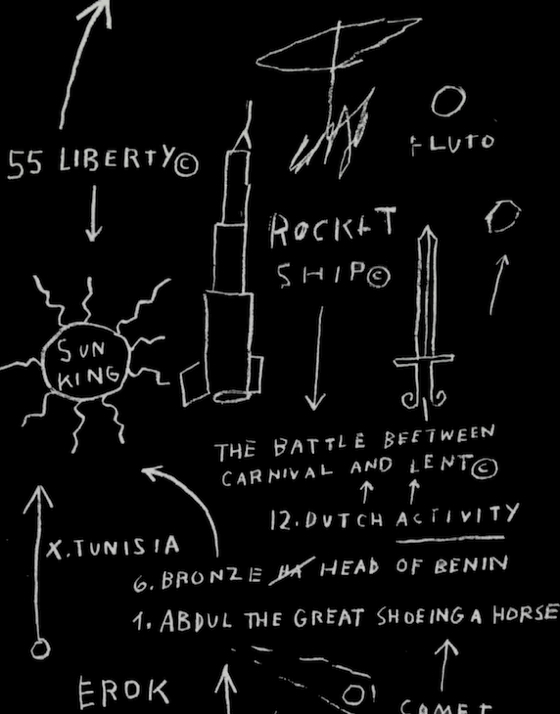 55 LIBERTY©
FLUTO
ROCKET
SHIP©
SUN
KING
THE BATTLE BEETWEEN
CARNIVAL AND LENT©
12. DUTCH ACTIVITY
X. TUNISIA
6. BRONZE HEAD OF BENIN
1. ABDUL THE GREAT SHOEING A HORSE
EROK
COMET